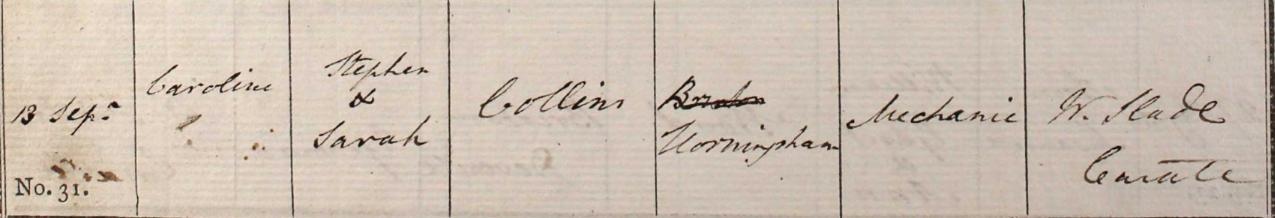 13 Sepr
No. 31.
Caroline
Stephen
&
Sarah
Collins
Horningsham
Mechanic
W. Slade
Curate